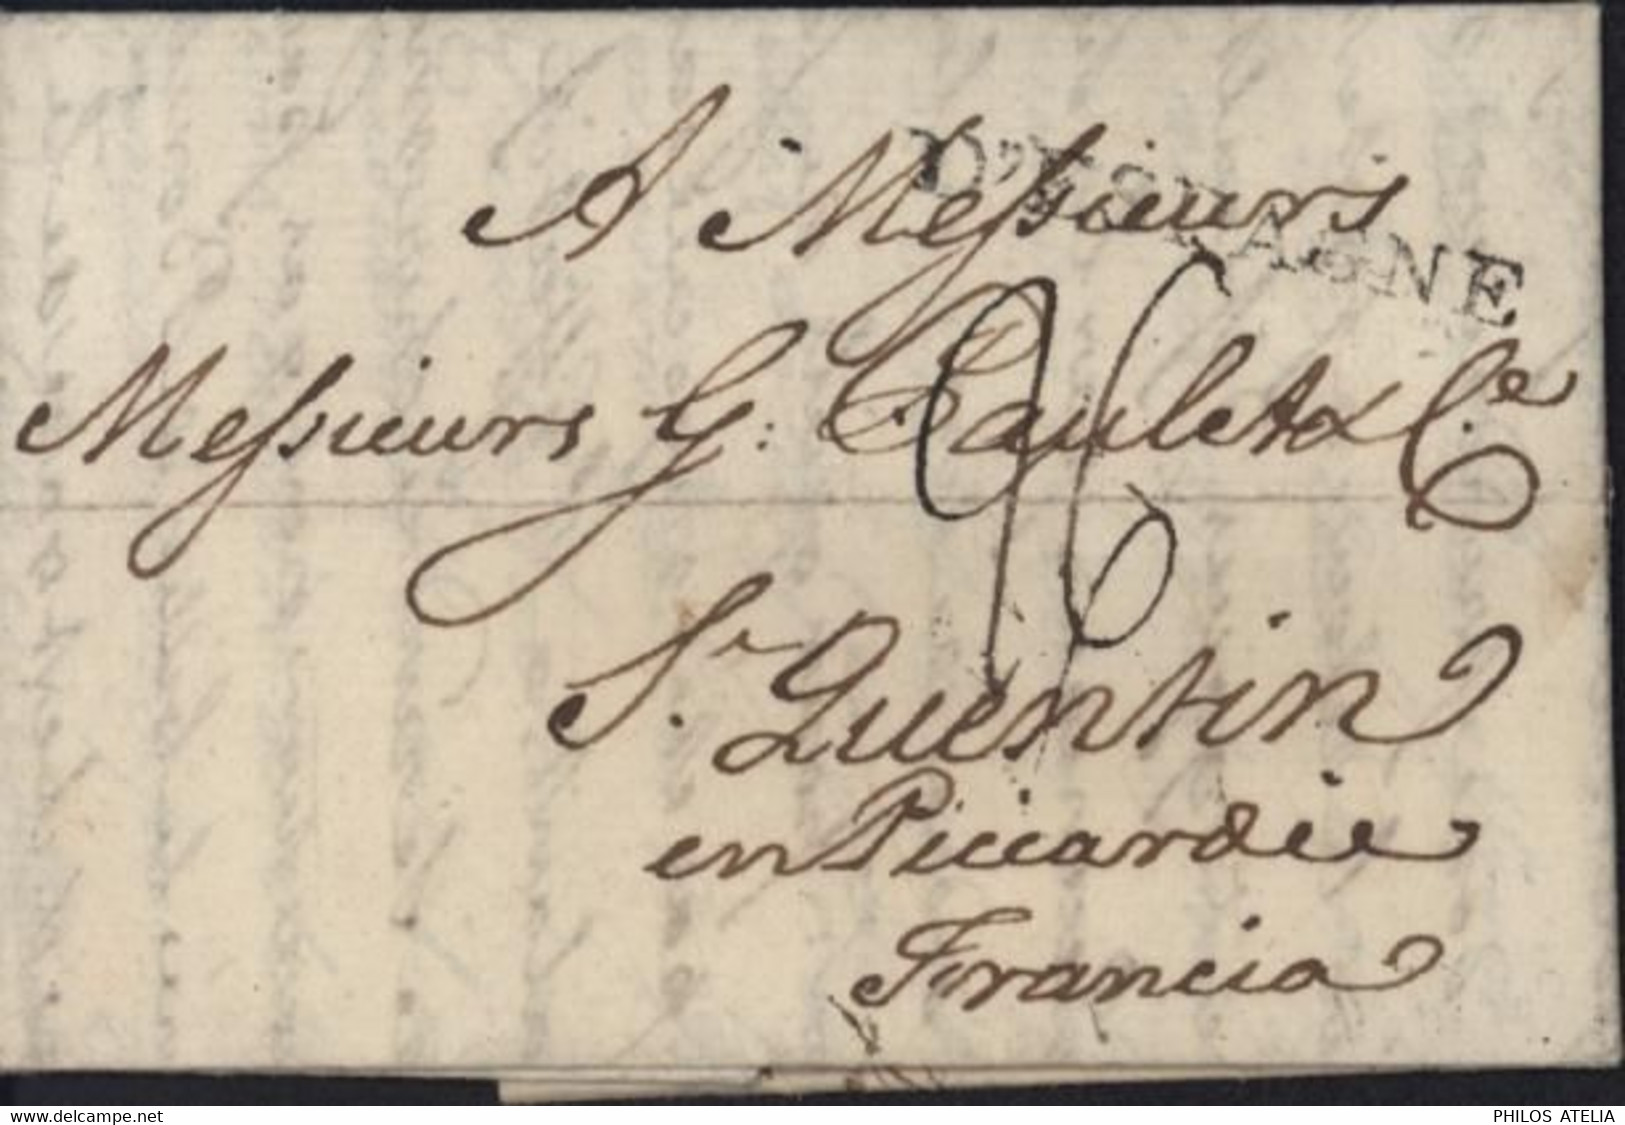 A Messieurs
D'ESPAGNE
Messieurs G: Paulet & Ce
26
St. Quentin
en Piccardie
Francia
www.delcampe.net
PHILOS ATELIA